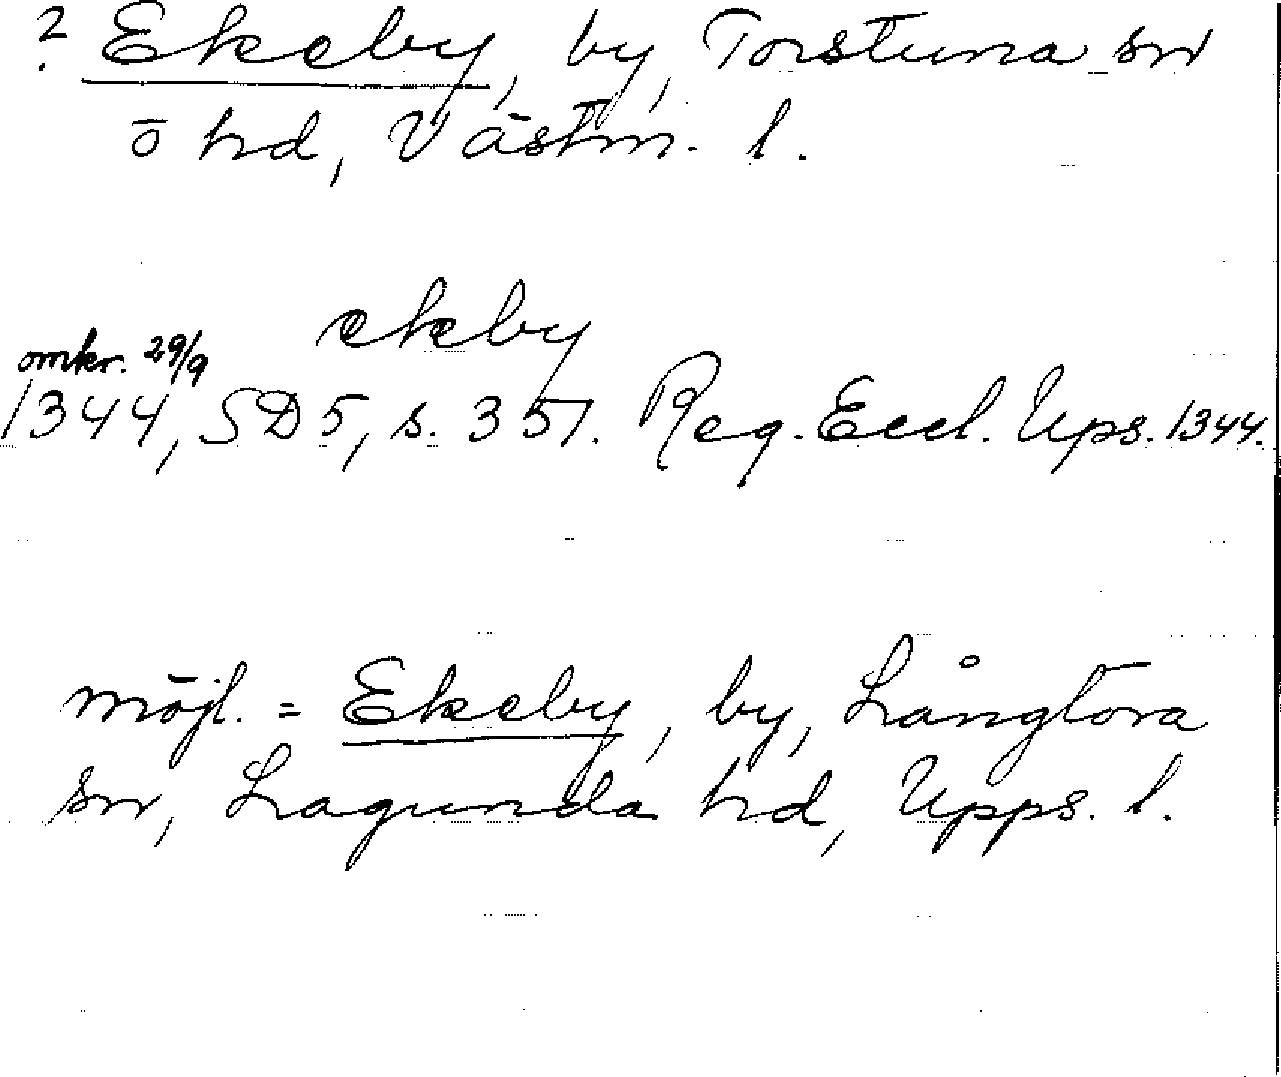 ? Ekeby, by, Torstuna sn
o hd, Västm. l.
ekeby
omkr. 29/9
1344, SD 5, s. 351. Reg. Eccl. Ups. 1344.
möjl. = Ekeby, by, Långtora
sn, Lagunda hd, Upps. l.